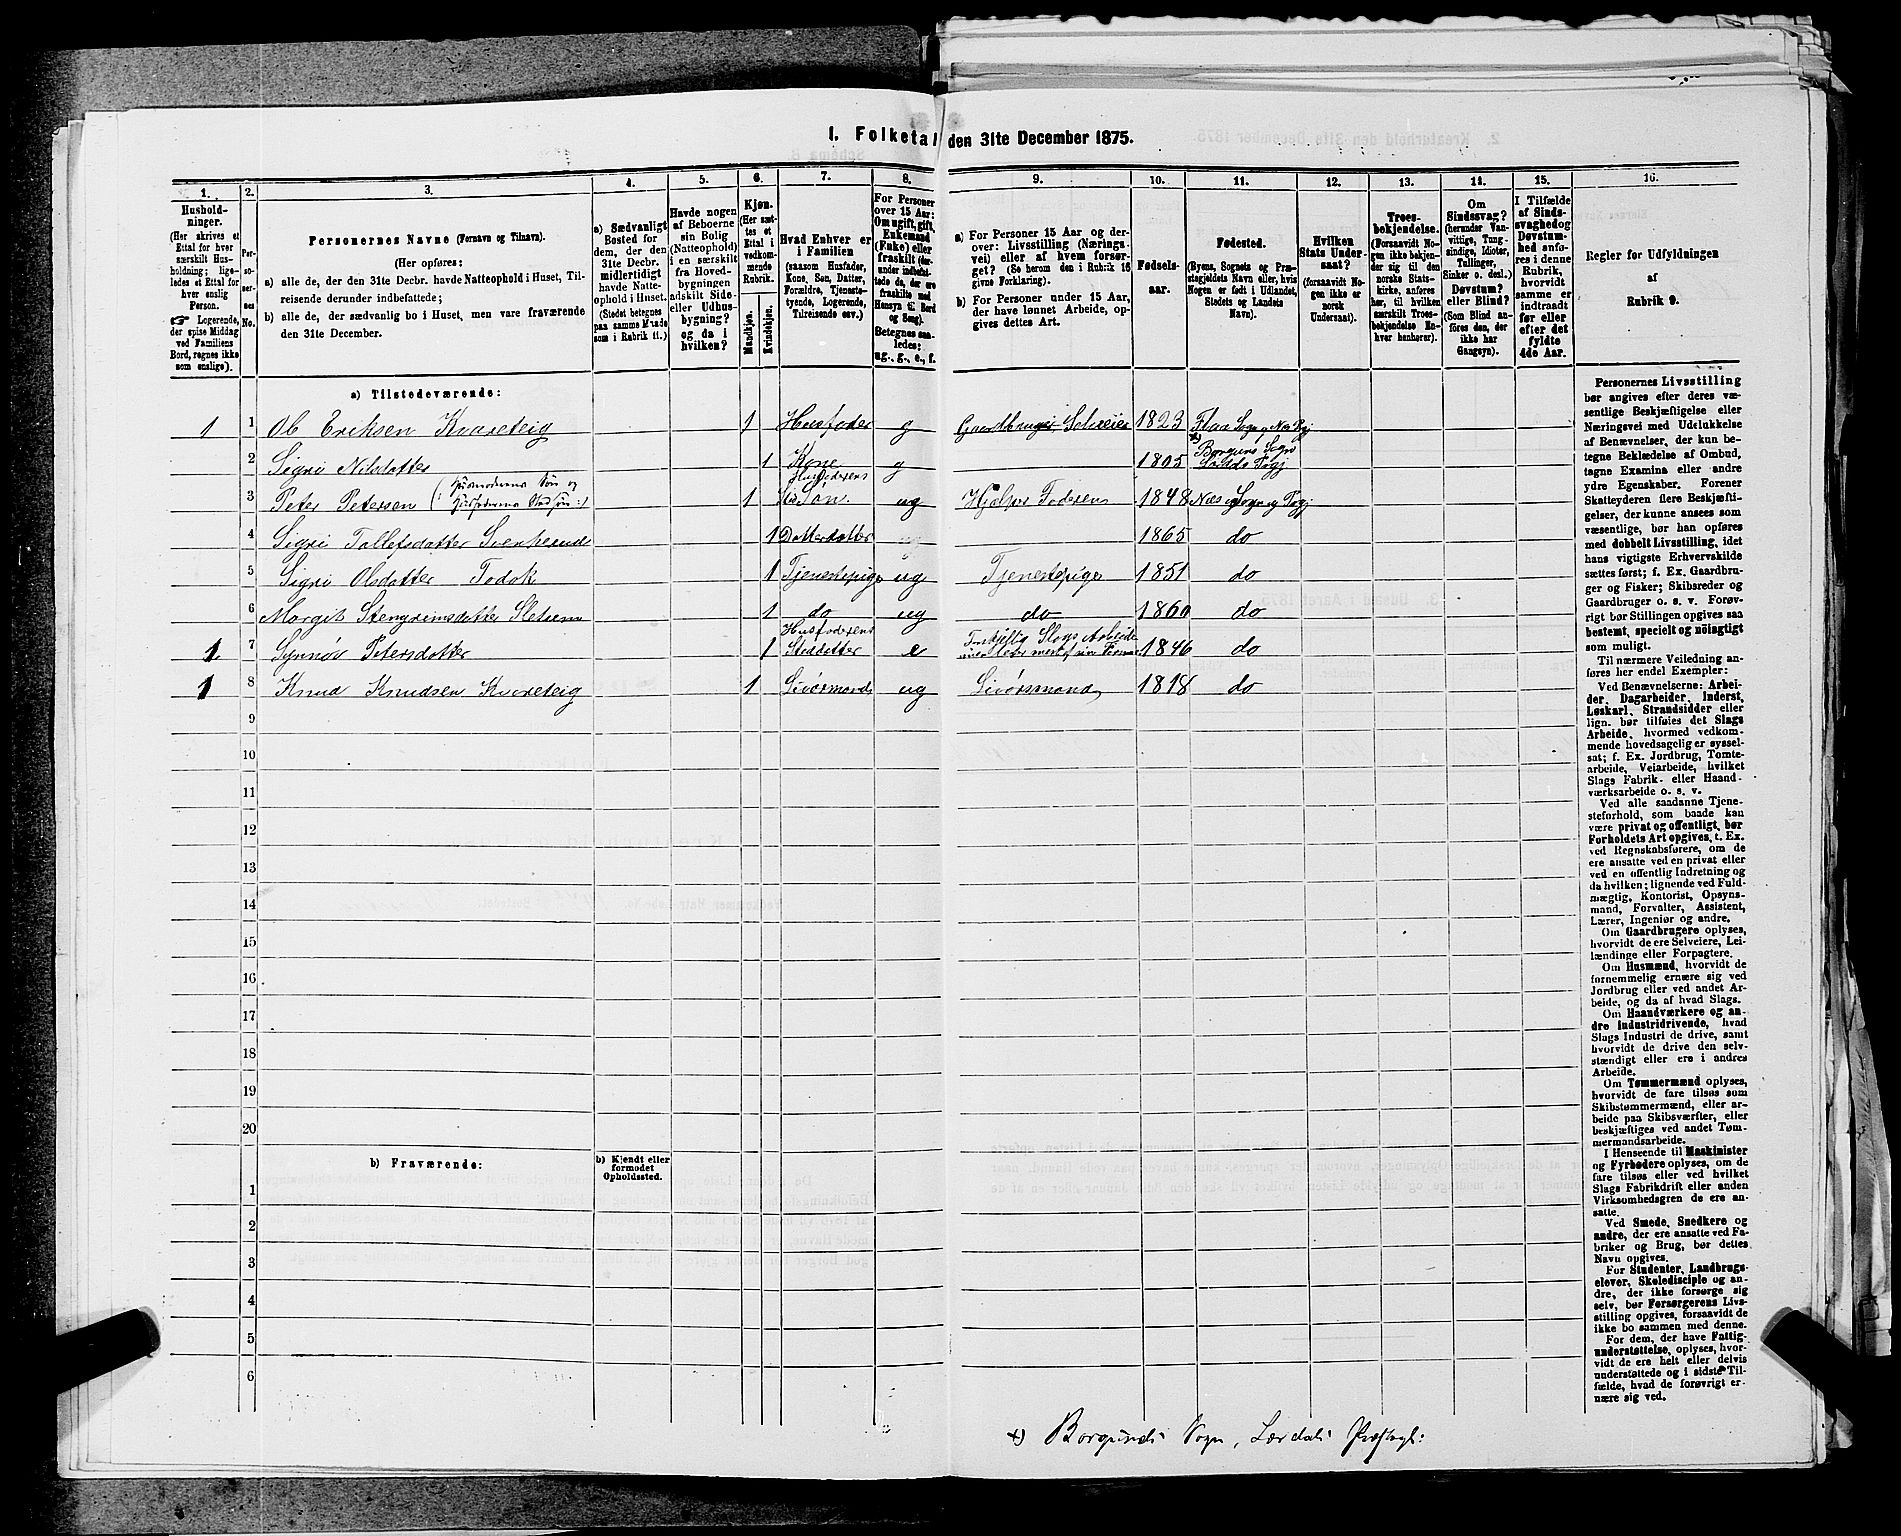 I. Folketal den 31te December 1875.
1. 2. 3. 4. 5. 6. 7. 8. 9. 10. 11. 12. 13. 14. 15. 16.
Hushold-
ninger.
(Her skrives et
Ettal for hver
særskilt Hus-
holdning; lige-
ledes et Ettal for
hver enslig
Person.
☞ Logerende,
der spise Middag
ved Familiens
Bord, regnes ikke
som enslige).
Per-
so-
ner-
nes
No.
Personernes Navne (Fornavn og Tilnavn).
(Her opføres:
a) alle de, der den 31te Decbr. havde Natteophold i Huset, Til-
reisende derunder indbefattede;
b) alle de, der sædvanlig bo i Huset, men vare fraværende
den 31te December.
a) Sædvanligt
Bosted for
dem, der den
31te Decbr.
midlertidigt
havde Natte-
ophold i Huset.
(Stedet betegnes
paa samme Maade
som i Rubrik 11.)
Havde nogen
af Beboerne
sin Bolig
(Natteophold)
i en særskilt
fra Hoved-
bygningen
adskilt Side-
eller Udhus-
bygning?
og da i
hvilken?
Kjøn.
(Her sæt-
tes et
Ettal i
vedkom-
mende
Rubrik.
Mandkjøn.
Kvindekjøn.
Hvad Enhver er
i Familien
(saasom Husfader,
Kone, Søn, Datter,
Forældre, Tjeneste-
tyende, Logerende,
Tilreisende osv.)
For Personer
over 15 Aar:
Om ugift, gift,
Enkemand
(Enke) eller
fraskilt (her-
under indbefat-
tede de, der ere
fraskilte med
Hensyn til Bord
og Seng).
Betegnes saa-
ledes:
ug., g., e., f.
a) For Personer 15 Aar og der-
over: Livsstilling (Nærings-
vei) eller af hvem forsør-
get? (Se herom den i Rubrik 16
givne Forklaring).
b) For Personer under 15 Aar,
der have lønnet Arbeide, op-
gives dettes Art.
Fødsels-
aar.
Fødested.
(Byens, Sognets og Præ-
stegjeldets Navn eller, hvis
Nogen er født i Udlandet,
Stedets og Landets
Navn).
Hvilken
Stats Under-
saat?
(forsaavidt No-
gen ikke er
norsk
Undersaat).
Troes-
bekjendelse.
(Forsaavidt No-
gen ikke bekjen-
der sig til den
norske Stats-
kirke, anføres
her, til hvilken
særskilt Troes-
bekjendelse En-
hver henhører).
Om
Sindssvag?
(herunder Van-
vittige, Tung-
sindige, Idioter,
Tullinger,
Sinker o. desl.)
Døvstum?
eller Blind?
(Som Blind an-
føres den, der
ikke har
Gangsyn).
I Tilfælde
af Sinds-
svaghed og
Døvstum-
hed anfø-
res i denne
Rubrik,
hvorvidt
samme er
indtraadt
før eller
efter det
fyldte
4de Aar.
Regler for Udfyldningen
af
Rubrik 9.
a) Tilstedeværende:
1 1 Ole Eriksen Kvareteig 1 Husfader g Gaardbruger Selveier 1823 Flaa Sogn Næs Pgj
2 Sigri Nilsdatter 1 Kone g 1805 x) Borguns Sogn
3 Peter Petersen (: Husmoderens Søn og Husfaderens Stedsøn :) 1 Husfaderens Stedsøn. ug Hjælper Faderen 1848 Næs Sogn og Pgj
4 Sigri Tollefsdatter Svenkerud 1 Datterdatter ug 1865 do
5 Sigri Olsdatter Todok 1 Tjenestepige ug Tjenestepige 1851 do
6 Margit Stengrimsdatter 1 do ug do 1860 do
1 7 Synnøv Petersdatter 1 Husfaderens Steddatter e Forskjellig Slags Arbeide 1846 do
1 8 Knud Knudsen Kvareteig 1 Livørsmand ug Livørsmand 1818 do
9
10
11
12
13
14
15
16
17
18
19
20
b) Fraværende:
b) Kjendt eller
formodet
Opholdssted.
1
2
3
4
5
6
Personernes Livsstilling
bør angives efter deres væ-
sentlige Beskjæftigelse eller
Næringsvei med Udelukkelse
af Benævnelser, der kun be-
tegne Beklædelse af Ombud,
tagne Examina eller andre
ydre Egenskaber. Forener
Skatteyderen flere Beskjæfti-
gelser, der kunne ansees som
væsentlige, bør han opføres
med dobbelt Livsstilling, idet
hans vigtigste Erhvervskilde
sættes først; f. Ex. Gaardbru-
ger og Fisker; Skibsreder og
Gaardbruger o. s. v. Forøv-
rigt bør Stillingen opgives saa
bestemt, specielt og nöiagtigt
som muligt.
Til nærmere Veiledning an-
føres her endel Exempler:
Ved Benævnelserne: Arbei-
der, Dagarbeider, Inderst,
Løskarl, Strandsidder eller
lign. bør tilføies det Slags
Arbeide, hvormed vedkom-
mende hovedsagelig er syssel-
sat; f. Ex. Jordbrug, Tomte-
arbeide, Veiarbeide, hvilket
Slags Fabrik- eller Haand-
værksarbeide o. s. v.
Ved alle saadanne Tjene-
steforhold, som baade kan
være privat og offentligt, bør
Forholdets Art opgives, t. Ex.
ved Regnskabsførere, om de
ere ansatte ved en privat eller
ved en offentlig Indretning og
da hvilken; lignende ved Fuld-
mægtig, Kontorist, Opsyns-
mand, Forvalter, Assistent,
Lærer, Ingeniør og andre.
Om Gaardbrugere oplyses,
hvorvidt de ere Selveiere, Lei-
lændinge eller Forpagtere.
Om Husmænd, hvorvidt de
fornemmelig ernære sig ved
Jordbrug eller ved andet Ar-
beide, og da af hvad Slags.
Om Haandværkere og an-
dre Industridrivende, hvad
Slags Industri de drive, samt
hvorvidt de drive den selv-
stændigt eller ere i andres
Arbeide.
Om Tømmermænd oplyses,
hvorvidt de fare tilsøs som
Skibstømmermænd, eller ar-
beide paa Skibsværfter, eller
beskjæftiges ved andet Tøm-
mermandsarbeide.
I Henseende til Maskinister
og Fyrbødere oplyses, om de
fare tilsøs eller ved hvilket
Slags Fabrikdrift eller anden
Virksomhedsgren de ere an-
satte.
Ved Smede, Snedkere og
andre, der ere ansatte ved Fa-
briker og Brug, bør dettes
Navn opgives.
For Studenter, Landbrugs-
elever, Skoledisciple og an-
dre, der ikke forsørge sig
selv, bør Forsørgerens Livs-
stilling opgives, forsaavidt de
ikke bo sammen med denne.
For dem, der have Fattig-
understøttelse, oplyses, hvor-
vidt de ere helt eller delvis
understøttede og i sidste Til-
fælde, hvad de forøvrigt er-
nære sig ved.
x) Borgunds Sogn, Lærdals Præstegj: